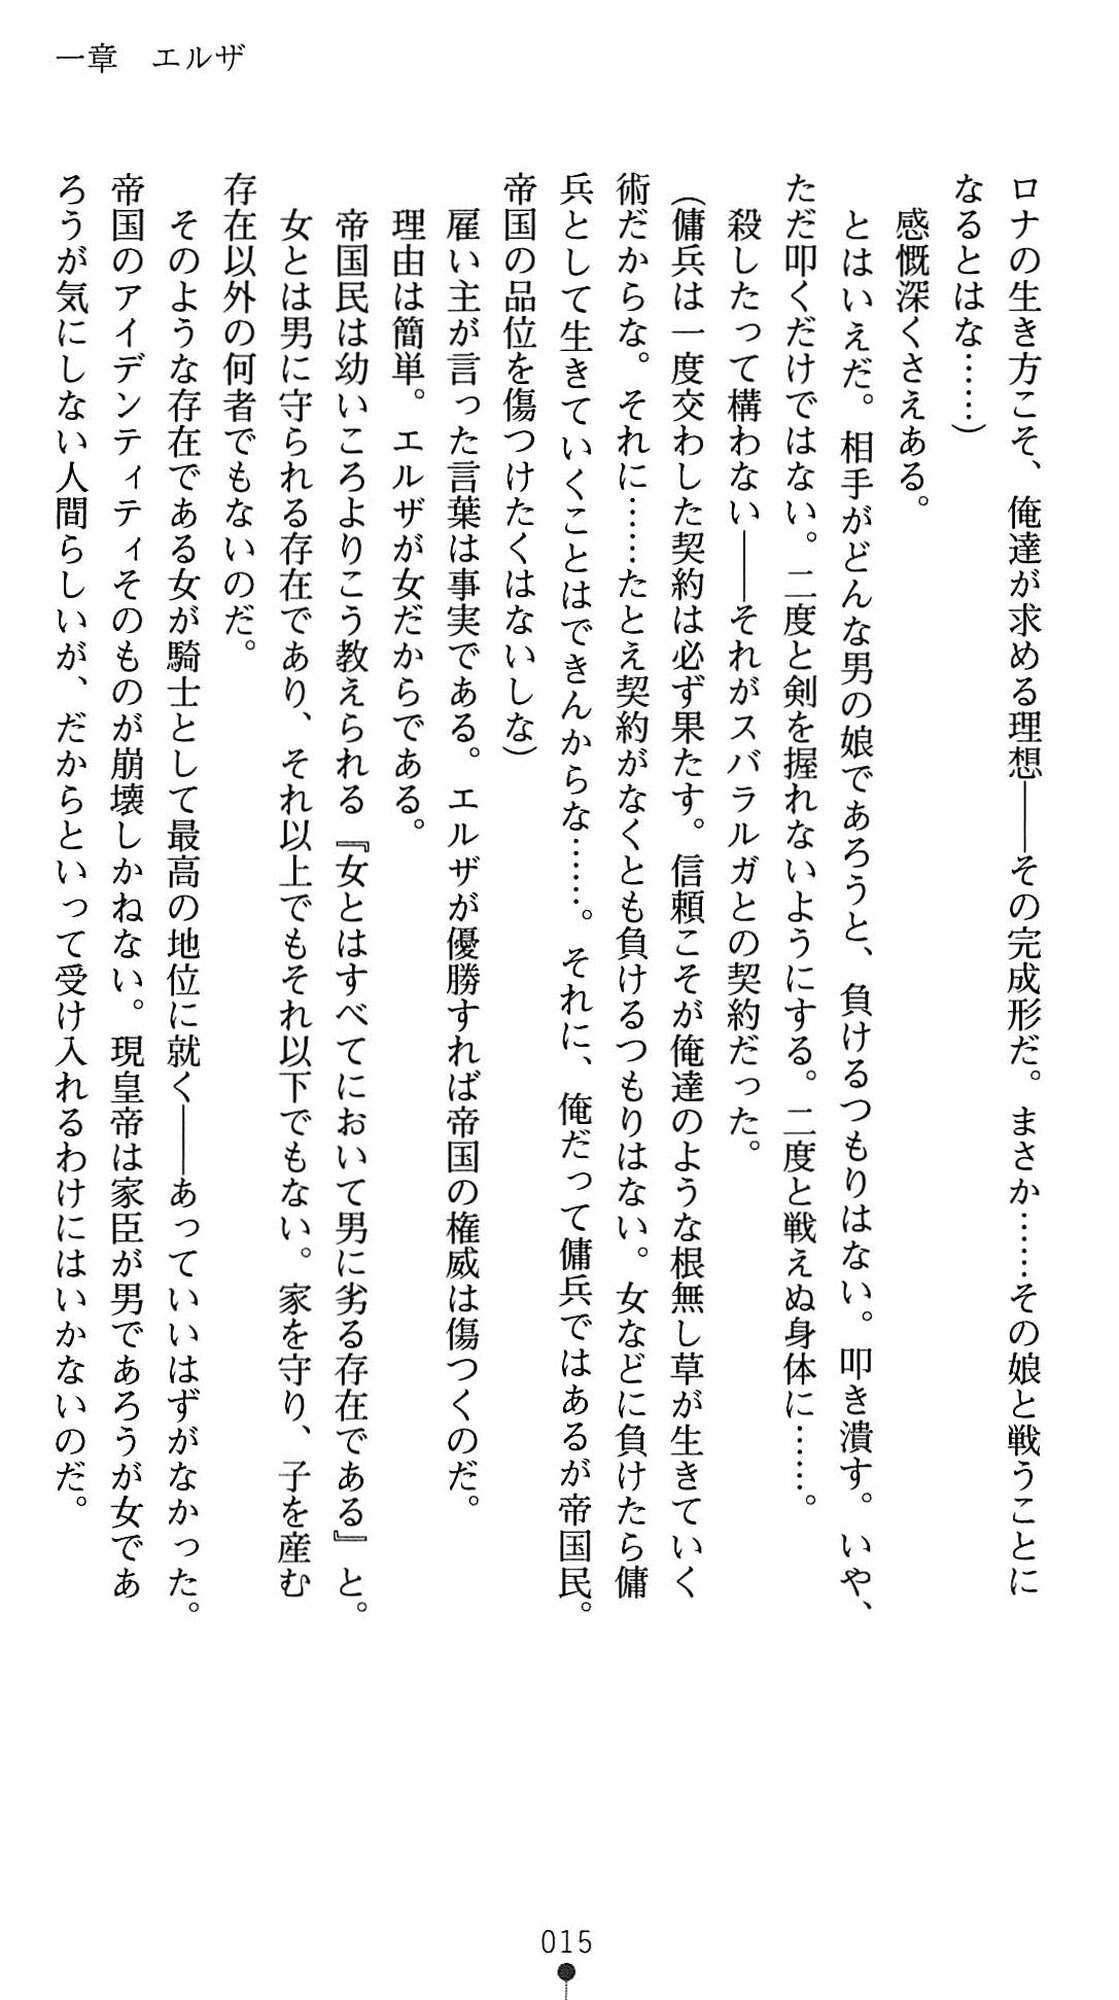 一章　エルザ
ロナの生き方こそ、俺達が求める理想――その完成形だ。まさか……その娘と戦うことに
なるとはな……）
　感慨深くさえある。
　とはいえだ。相手がどんな男の娘であろうと、負けるつもりはない。叩き潰す。いや、
ただ叩くだけではない。二度と剣を握れないようにする。二度と戦えぬ身体に……。
　殺したって構わない――それがスバラルガとの契約だった。
（傭兵は一度交わした契約は必ず果たす。信頼こそが俺達のような根無し草が生きていく
術だからな。それに……たとえ契約がなくとも負けるつもりはない。女などに負けたら傭
兵として生きていくことはできんからな……。それに、俺だって傭兵ではあるが帝国民。
帝国の品位を傷つけたくはないしな）
　雇い主が言った言葉は事実である。エルザが優勝すれば帝国の権威は傷つくのだ。
　理由は簡単。エルザが女だからである。
　帝国民は幼いころよりこう教えられる『女とはすべてにおいて男に劣る存在である』と。
　女とは男に守られる存在であり、それ以上でもそれ以下でもない。家を守り、子を産む
存在以外の何者でもないのだ。
　そのような存在である女が騎士として最高の地位に就く――あっていいはずがなかった。
帝国のアイデンティティそのものが崩壊しかねない。現皇帝は家臣が男であろうが女であ
ろうが気にしない人間らしいが、だからといって受け入れるわけにはいかないのだ。
015